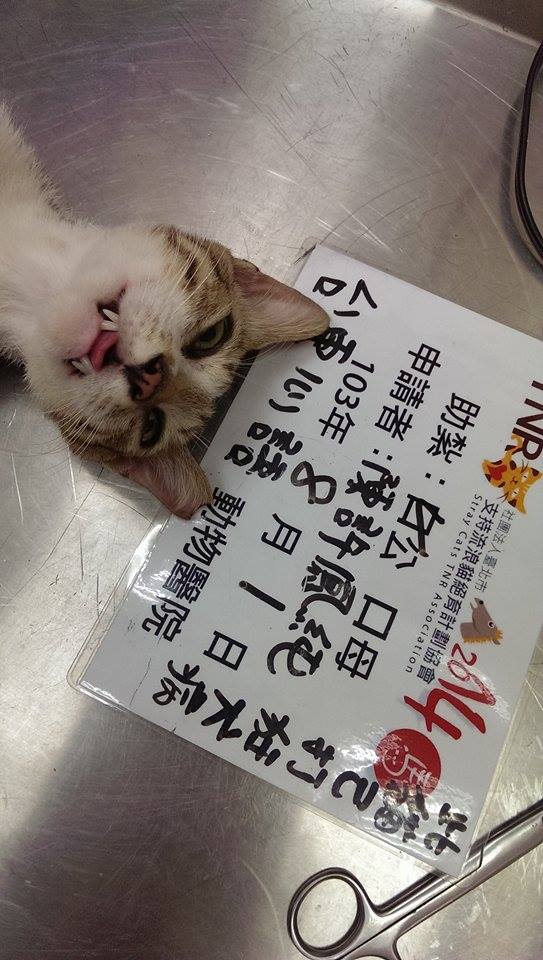 TNR
社團法人臺北市
支持流浪貓絕育計劃協會
Stray Cats TNR Association
2014
助紮：☑公 □母
申請者：陳許鳳純
103年 8月1日
心語 動物醫院
此貓已打狂犬病